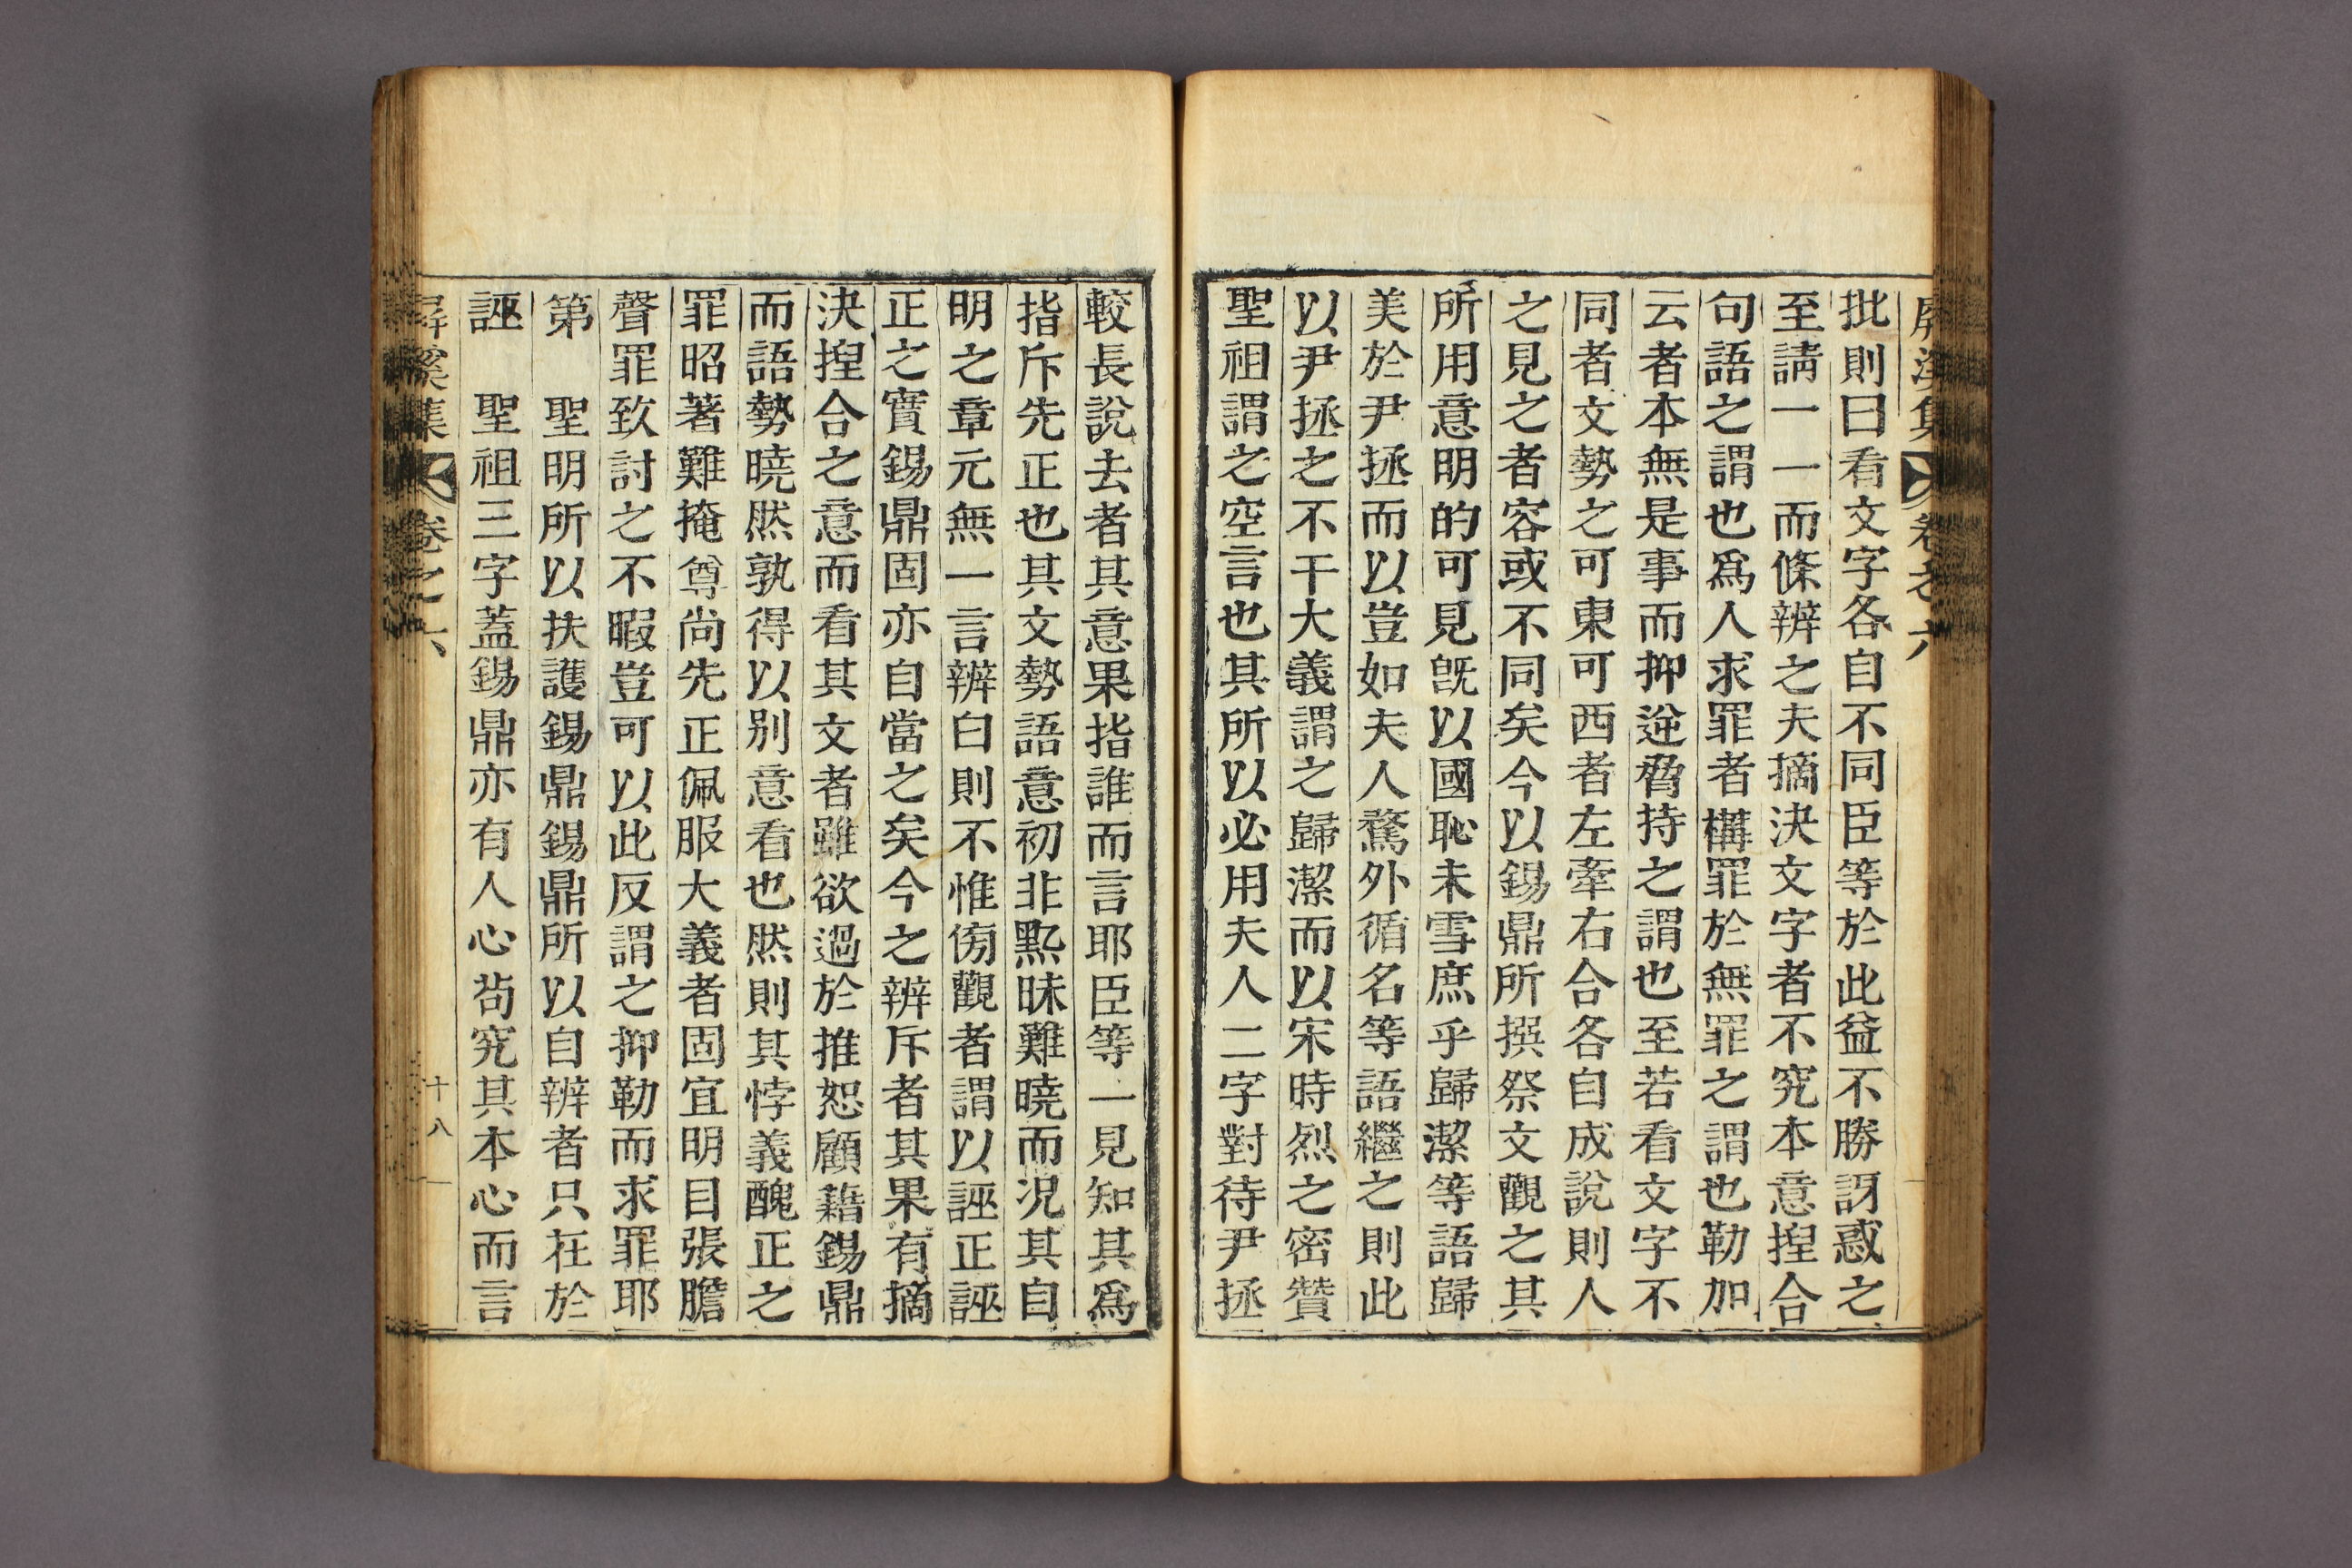 屏溪集 卷之六
批則曰看文字各自不同臣等於此益不勝訝惑之
至請一一而條辨之夫摘決文字者不究本意揑合
句語之謂也爲人求罪者構罪於無罪之謂也勒加
云者本無是事而抑逆脅持之謂也至若看文字不
同者文勢之可東可西者左牽右合各自成說則人
之見之者容或不同矣今以錫鼎所撰祭文觀之其
所用意明的可見旣以國恥未雪庶乎歸潔等語歸
美於尹拯而以豈如夫人騖外循名等語繼之則此
以尹拯之不干大義謂之歸潔而以宋時烈之密贊
聖祖謂之空言也其所以必用夫人二字對待尹拯
較長說去者其意果指誰而言耶臣等一見知其爲
指斥先正也其文勢語意初非黯昧難曉而况其自
明之章元無一言辨白則不惟傍觀者謂以誣正誣
正之實錫鼎固亦自當之矣今之辨斥者其果有摘
決揑合之意而看其文者雖欲過於推恕顧藉錫鼎
而語勢曉然孰得以別意看也然則其悖義醜正之
罪昭著難掩尊尙先正佩服大義者固宜明目張膽
聲罪致討之不暇豈可以此反謂之抑勒而求罪耶
第 聖明所以扶護錫鼎錫鼎所以自辨者只在於
誣 聖祖三字蓋錫鼎亦有人心苟究其本心而言
屏溪集 卷之六 十八